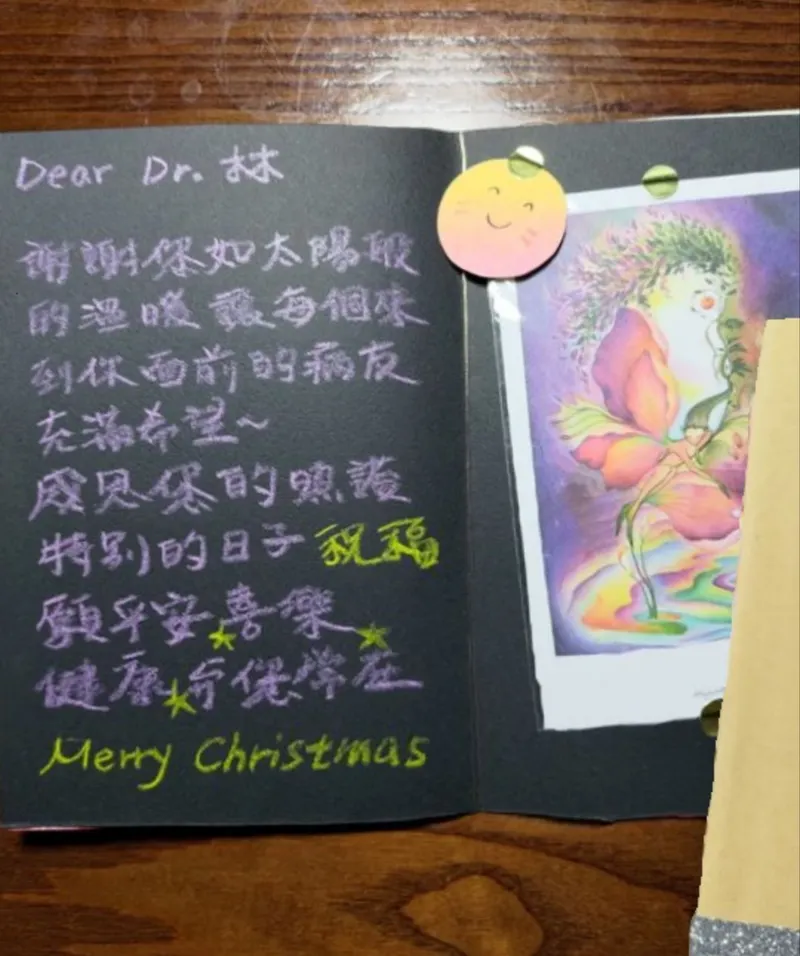 Dear Dr. 林
謝謝您如太陽般
的溫暖讓每個來
到你面前的病友
充滿希望~
感恩您的照護
特別的日子祝福
願平安喜樂
健康与您常在
Merry Christmas